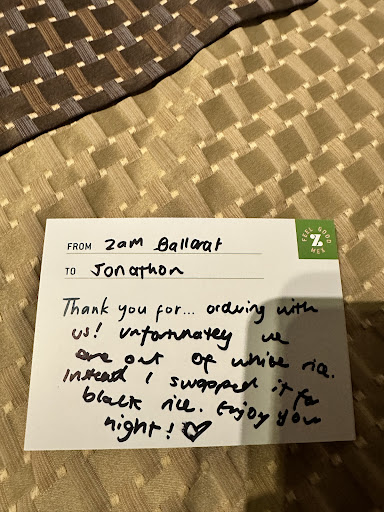 FEEL GOOD
Z
MEX
FROM Zam Ballarat
TO Jonathon
Thank you for... ordering with
us! unfortunately we
are out of white rice.
Instead I swapped it for
black rice. Enjoy your
night! ♡